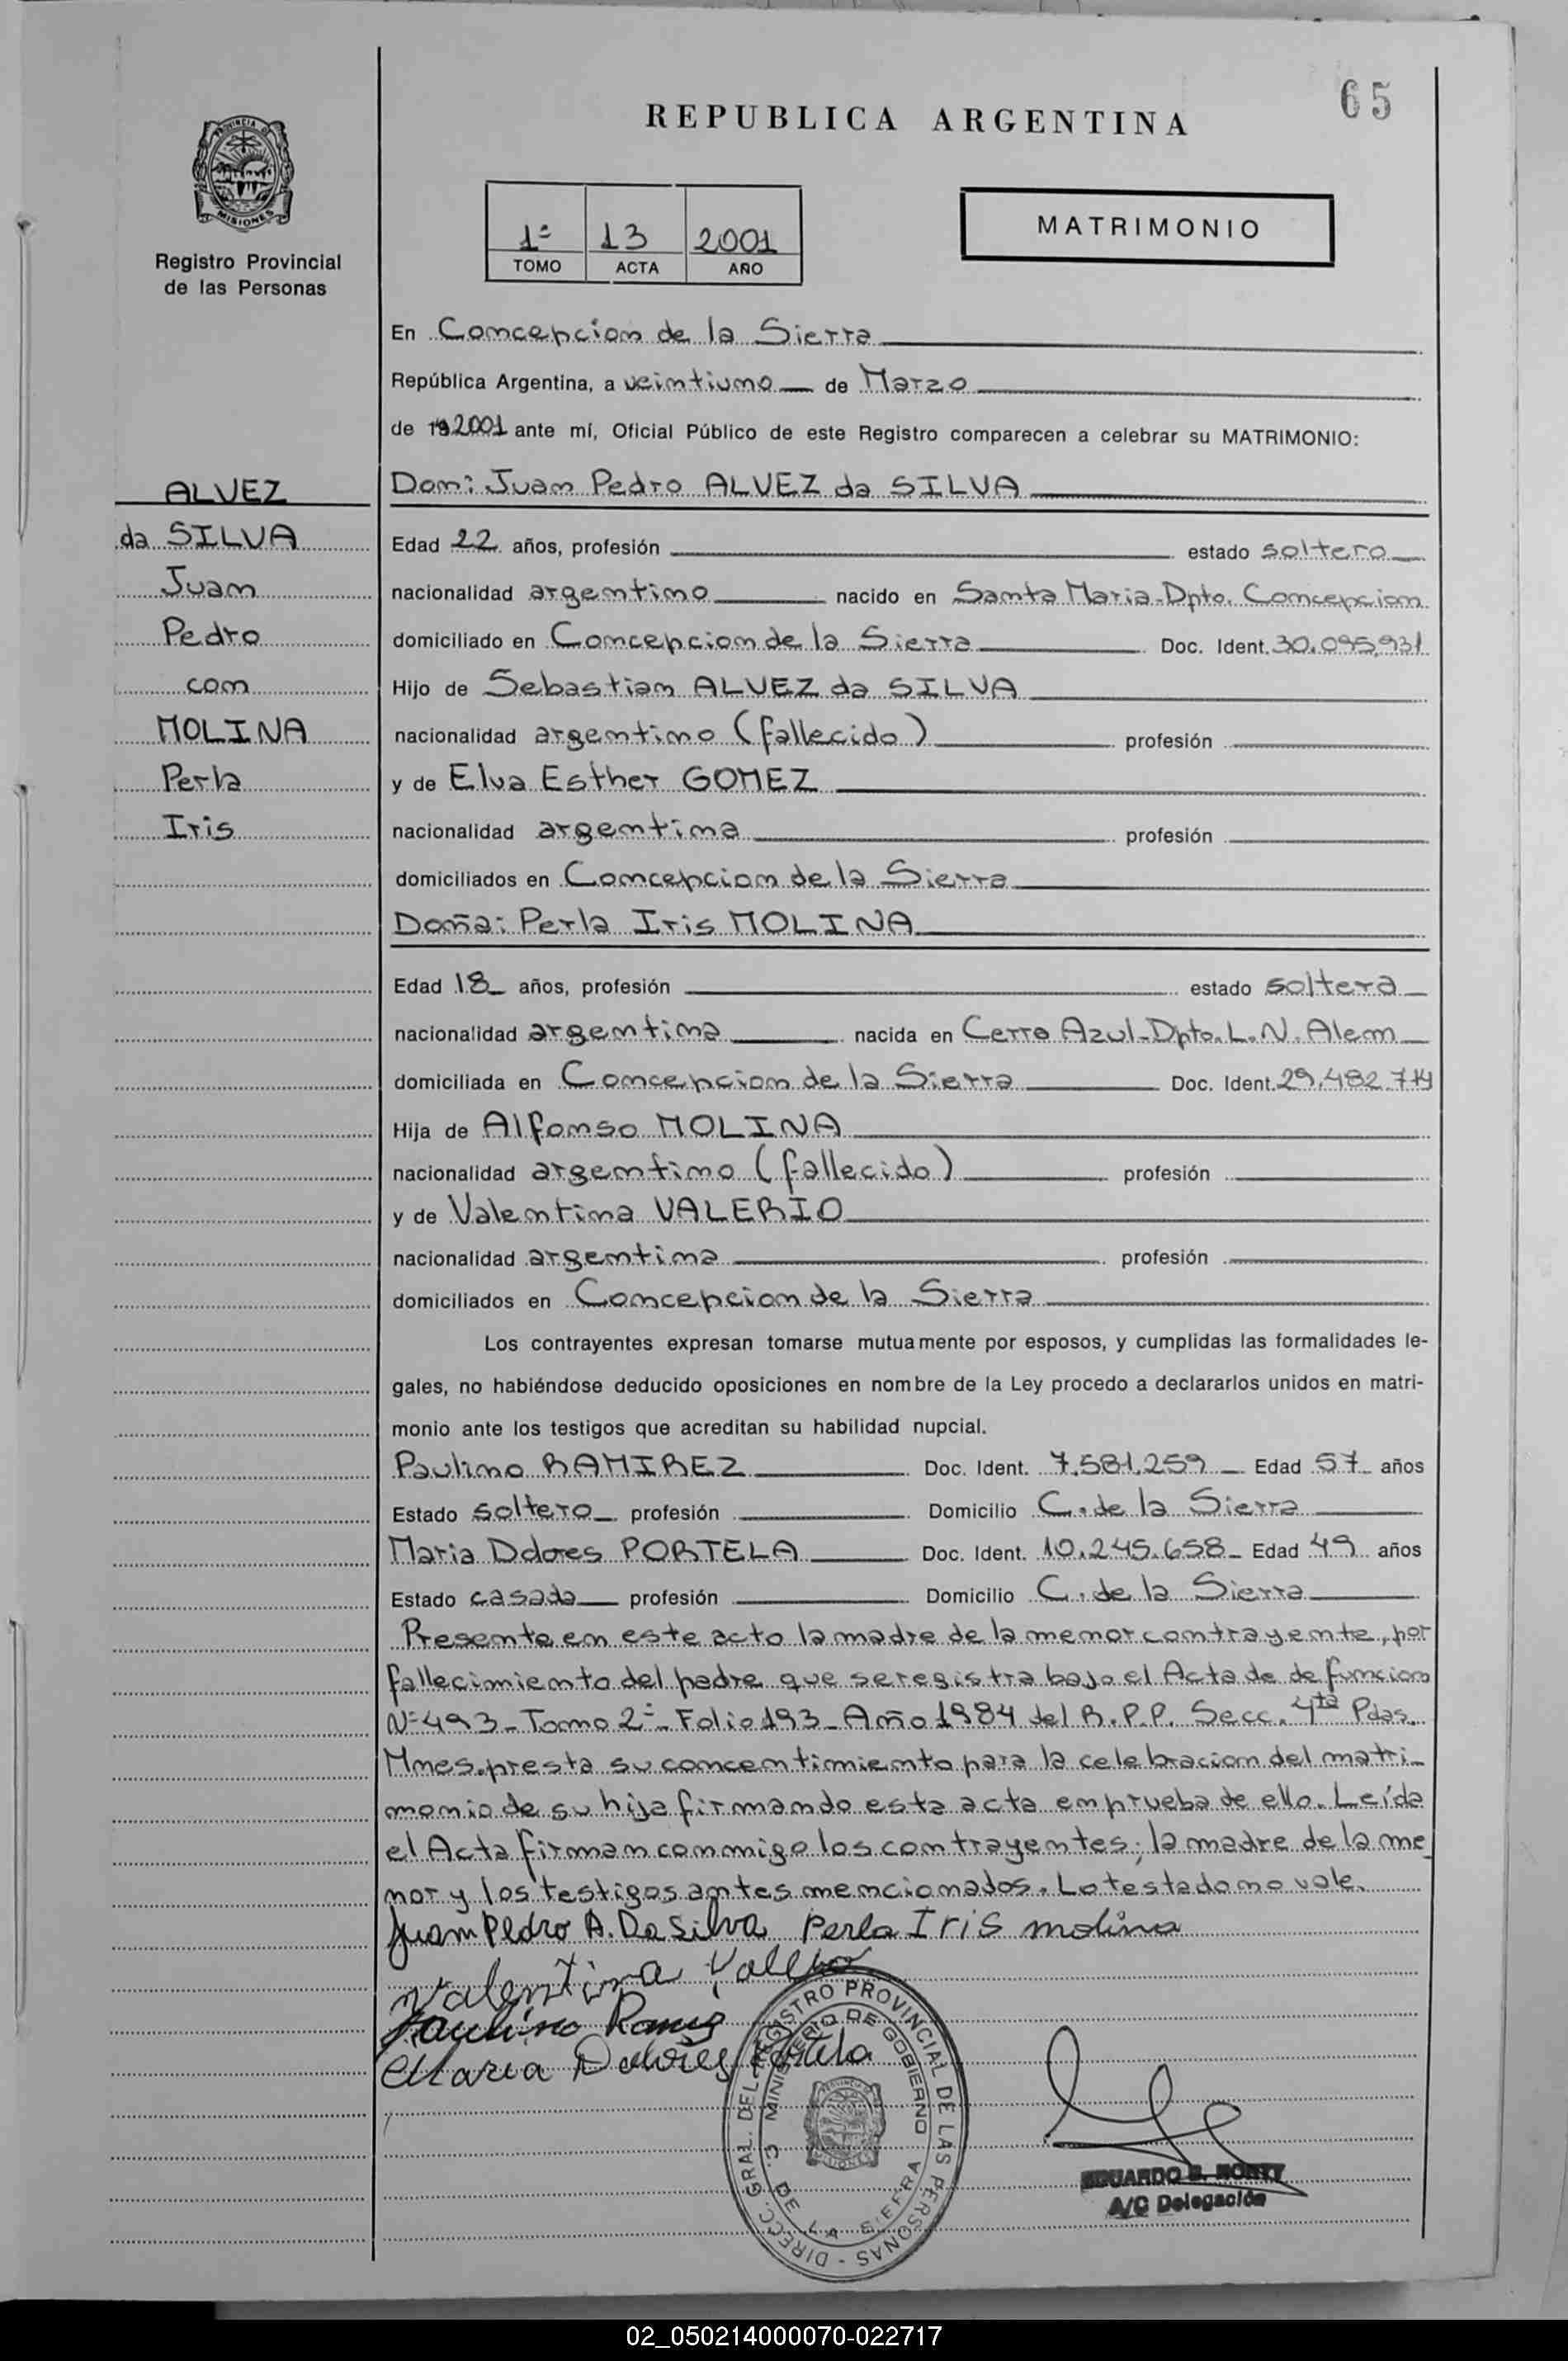 65
REPUBLICA ARGENTINA
PROVINCIA DE
MISIONES
Registro Provincial
de las Personas
1º 13 2001
TOMO ACTA AÑO
MATRIMONIO
En Concepcion de la Sierra
República Argentina, a veintiuno de Marzo
de 19 2001 ante mí, Oficial Público de este Registro comparecen a celebrar su MATRIMONIO:
ALVEZ
da SILVA
Juan
Pedro
con
MOLINA
Perla
Iris
Don: Juan Pedro ALVEZ da SILVA
Edad 22 años, profesión estado soltero
nacionalidad argentino nacido en Santa Maria-Dpto. Concepcion
domiciliado en Concepcion de la Sierra Doc. Ident. 30.095.931
Hijo de Sebastian ALVEZ da SILVA
nacionalidad argentino (fallecido) profesión
y de Elva Esther GOMEZ
nacionalidad argentina profesión
domiciliados en Concepcion de la Sierra
Doña: Perla Iris MOLINA
Edad 18 años, profesión estado soltera
nacionalidad argentina nacida en Cerro Azul-Dpto. L. N. Alem
domiciliada en Concepcion de la Sierra Doc. Ident. 29.482.714
Hija de Alfonso MOLINA
nacionalidad argentino (fallecido) profesión
y de Valentina VALERIO
nacionalidad argentina profesión
domiciliados en Concepcion de la Sierra
Los contrayentes expresan tomarse mutuamente por esposos, y cumplidas las formalidades le-
gales, no habiéndose deducido oposiciones en nombre de la Ley procedo a declararlos unidos en matri-
monio ante los testigos que acreditan su habilidad nupcial.
Paulino RAMIREZ Doc. Ident. 7.581.259 Edad 57 años
Estado soltero profesión Domicilio C. de la Sierra
Maria Dolores PORTELA Doc. Ident. 10.245.658 Edad 49 años
Estado casada profesión Domicilio C. de la Sierra
Presente en este acto la madre de la menor contrayente, por
fallecimiento del padre que se registra bajo el Acta de defuncion
Nº 493 - Tomo 2º - Folio 193 - Año 1984 del R.P.P. Secc. 4ta Pdas.
Mnes. presta su concentimiento para la celebracion del matri-
monio de su hija firmando esta acta en prueba de ello. Leída
el Acta firman conmigo los contrayentes; la madre de la me
nor y los testigos antes mencionados. Lo testado no vale.
Juan Pedro A. Da Silva Perla Iris Molina
Valentina Valerio
Paulino
Maria Dolores Portela
DIRECC. GRAL. DEL REGISTRO PROVINCIAL DE LAS PERSONAS -
MINISTERIO DE GOBIERNO
C. DE LA SIERRA
A/C Delegación
02_050214000070-022717